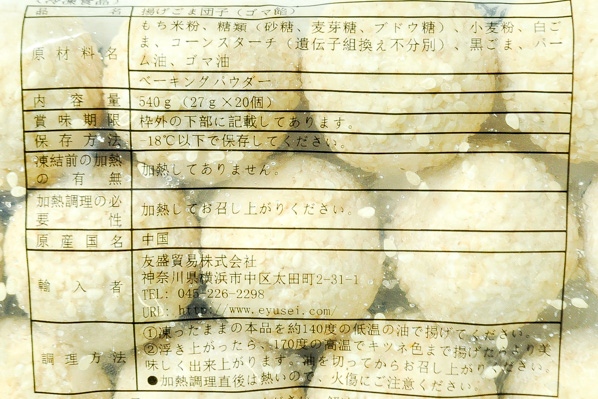 (冷凍食品)
品名 揚げごま団子(ゴマ餡)
原材料名 もち米粉、糖類(砂糖、麦芽糖、ブドウ糖)、小麦粉、白ご
ま、コーンスターチ(遺伝子組換え不分別)、黒ごま、パー
ム油、ゴマ油
ベーキングパウダー
内容量 540g(27g×20個)
賞味期限 枠外の下部に記載してあります。
保存方法 -18℃以下で保存してください。
凍結前の加熱の有無 加熱してありません。
加熱調理の必要性 加熱してお召し上がりください。
原産国名 中国
輸入者 友盛貿易株式会社
神奈川県横浜市中区太田町2-31-1
TEL: 045-226-2298
URL: http://www.eyusei.com/
調理方法 ①凍ったままの本品を約140度の低温の油で揚げてください。
②浮き上がったら、170度の高温でキツネ色まで揚げたらより美
味しく出来上がります。油を切ってからお召し上がりください。
●加熱調理直後は熱いので、火傷にご注意ください。